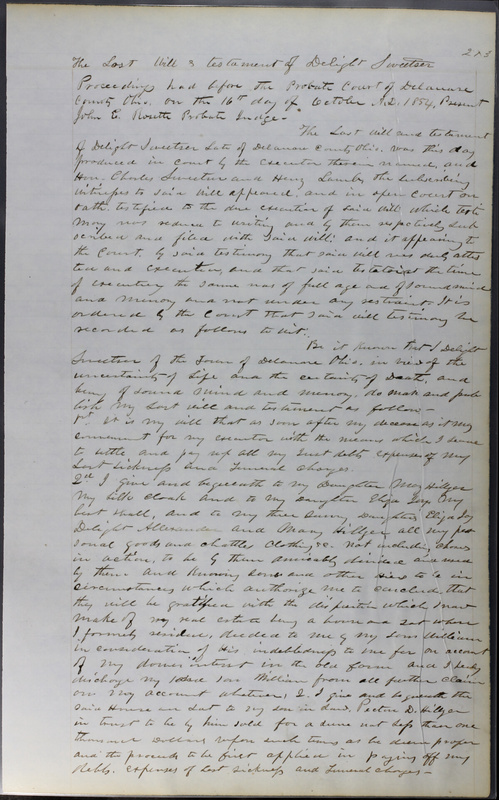 The Last Will & testament of Delight Sweetser
Proceedings had before the Probate Court of Delaware
County Ohio, on the 16th day of October A.D. 1854, Present
John C. Probate Judge -
The Last will and testament
of Delight Sweetser Late of Delaware County Ohio, was this day
produced in court by the executor therein named, and
Hon. Charles Sweetser and Henry Lamb, the subscribing
witnesses to said will appeared, and in open court on
oath testified to the due execution of said will, which testi
mony was reduced to writing and by them respectively sub
scribed and filed with said will; and it appearing to
the Court, by said testimony that said will was duly attes
ted and executed, and that said testator at the time
of executing the same was of full age and of sound mind
and memory and not under any restraint. It is
ordered by the Court that said will testimony be
recorded as follows to wit.
Be it known that I Delight
Sweetser of the Town of Delaware Ohio, in view of the
uncertainty of life and the certainty of Death, and
being of sound mind and memory, do make and pub
lish my last will and testament as follow -
1st. It is my will that as soon after my decease as it may
convenient for my executor with the means which I leave
to settle and pay up all my Just debts expenses of my
Last sickness and Funeral charges.
2nd I give and bequeath to my Daughter Mary Hillyer
my silk cloak and to my daughter Eliza Joy my
best shall, and to my three Daughters Eliza Joy
Delight Alexander and Mary Hillyer all my per
sonal goods and chattles clothing &c. not including choses
in action, to be by them amicably divided and used
by them and Knowing sons and other to be in
circumstances which authorize me to conclude that
they will be gratified with the disposition which I now
make of my real estate being a house and Lot where
I formerly resided, deeded to me by my son William
in consideration of His indebtedness to me for on account
of my dower interest in the old farm and I hereby
discharge my said son William from all further claim
on my account whatever, I give and bequeath the
said House and Lot to my son in Law, D. Hillyer
in trust to be by him sold for a sum not less than one
thousand Dollars upon such terms as he deem proper
and the proceeds to be first applied in paying off my
debts, expenses of Last sickness and Funeral charges -